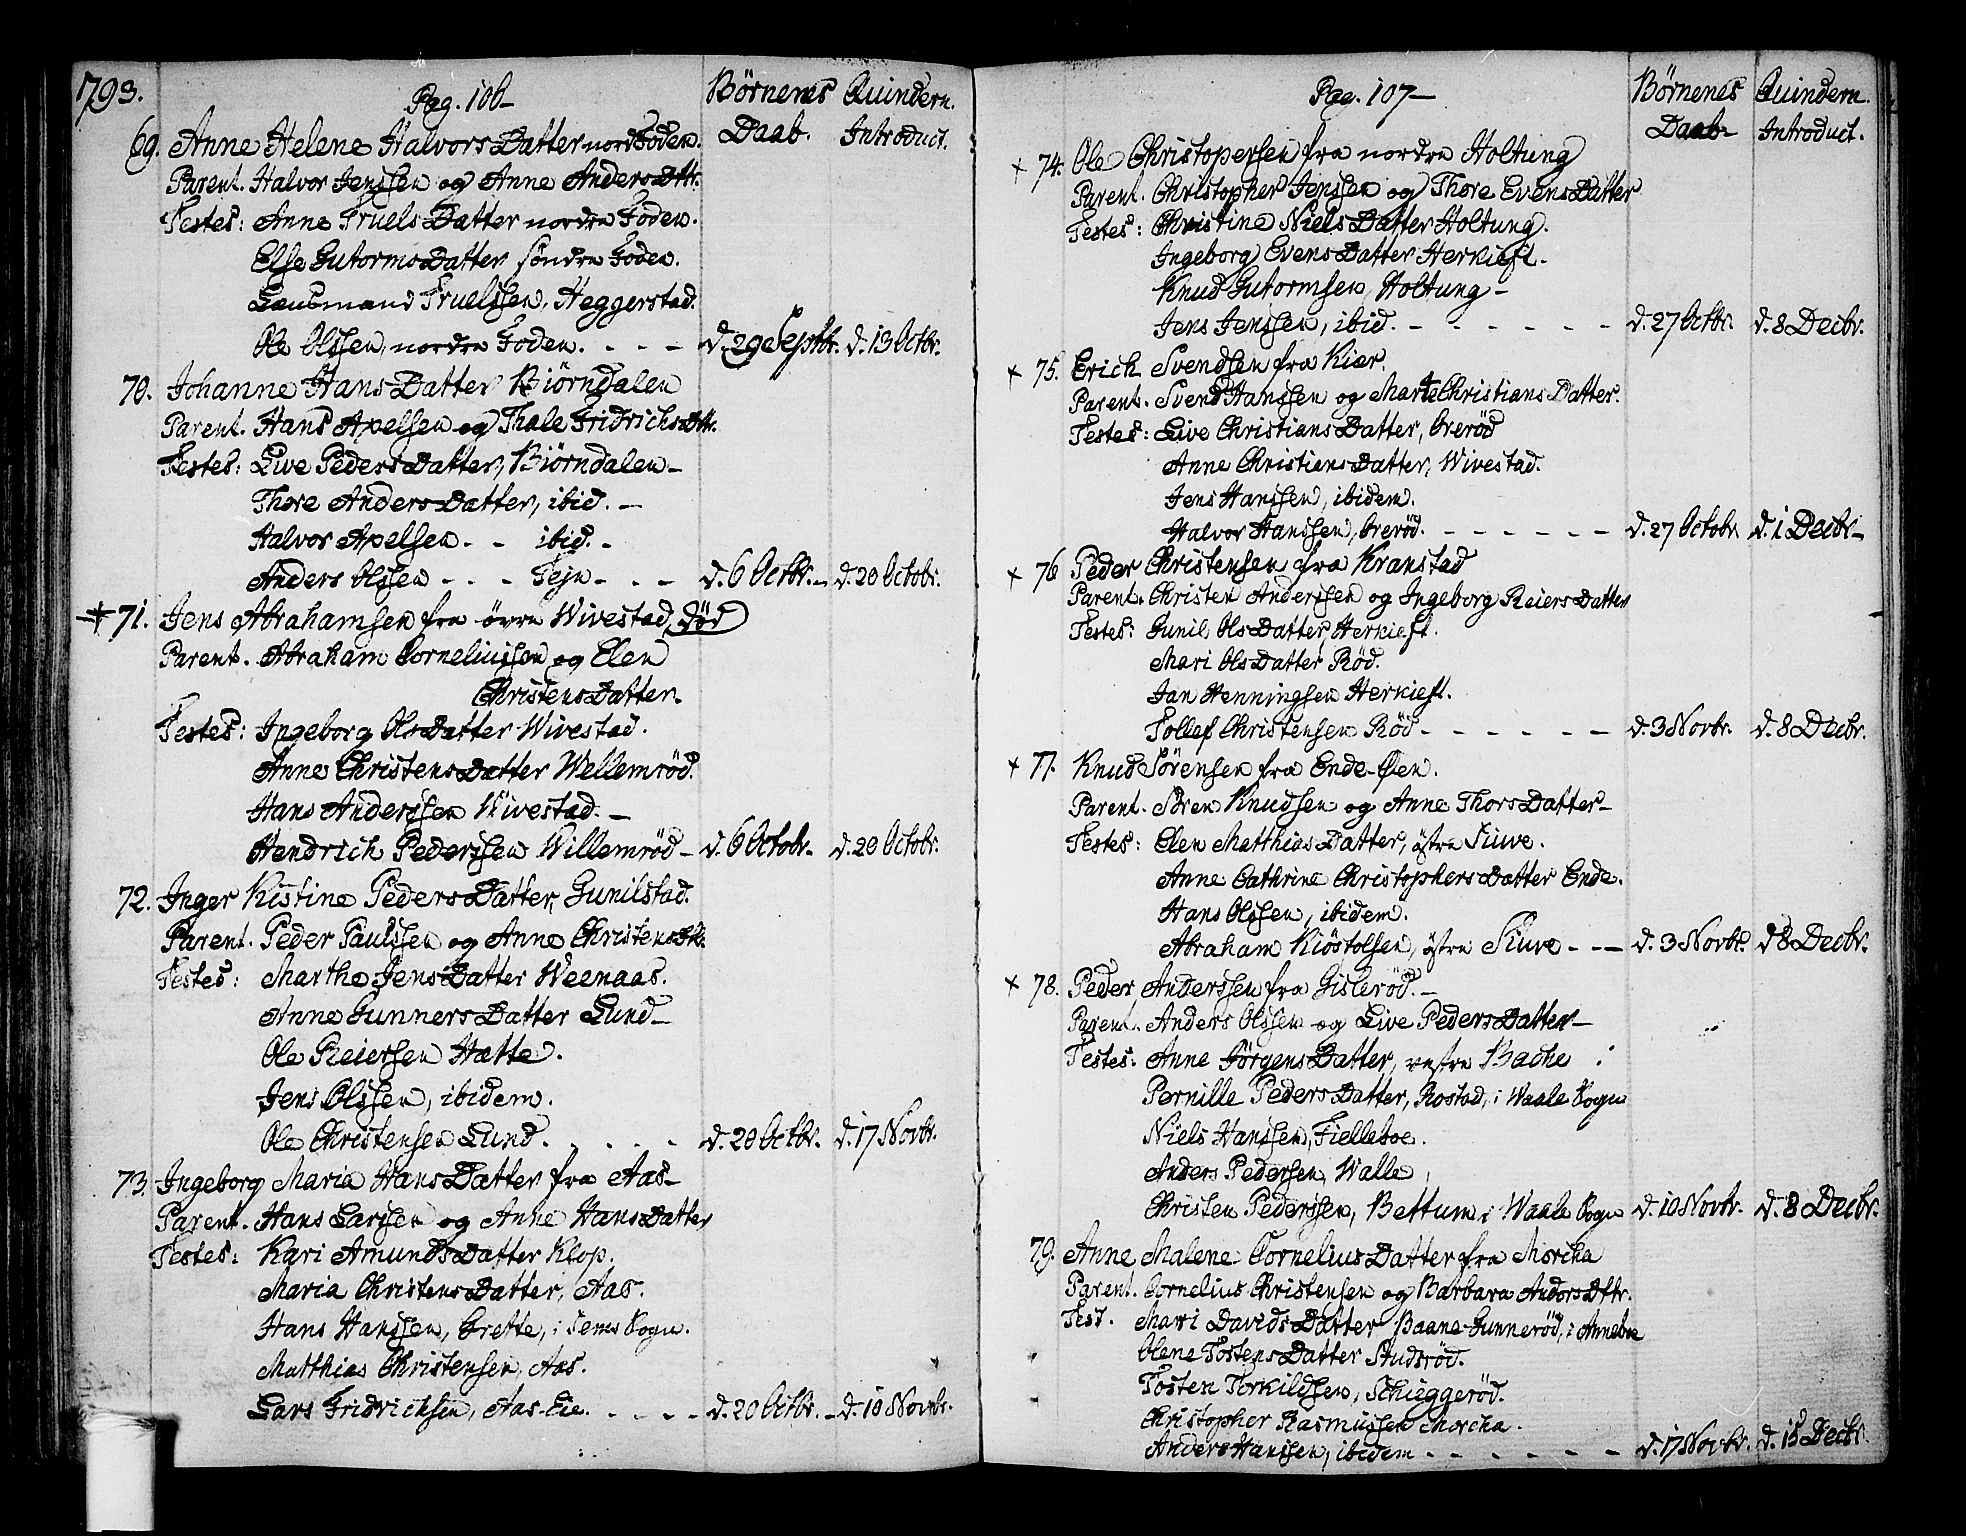 1793.
Pag. 106-
Börnenes Quindern.
Daab. Introduct.
69. Anne Helene Halvors Datter nordFoden.
Parent. Halvor Jenssen og Anne Anders Dttr.
Testes: Anne Truels Datter nordre Foden.
Else Gutorms Datter söndre Foden.
Lensmand Truelssen, Heggerstad.
Ole Olssen, nordre Foden. - - - d. 29 Septbr. d. 13 Octbr.
70. Johanne Hans Datter Biörndalen
Parent. Hans Apelsen og Thale Fridrichs Dttr.
Testes: Live Peders Datter, Biörndalen-
Thore Anders Datter, ibid. -
Halvor Apelsen - - ibid. -
Anders Olssen - - - Tejn - - - d. 6 Octbr. - d. 20 Octobr.
+ 71. Jens Abrahamsen fra övre Wivestad, död
Parent. Abraham Corneliussen og Elen
Christens Datter.
Testes: Ingeborg Ols Datter Wivestad.
Anne Christens Datter Wellemröd.
Hans Anderssen Wivestad. -
Hendrich Pederssen Willemröd - d. 6 Octobr. d. 20 Octobr.
72. Inger Kistine Peders Datter, Gunilstad.
Parent. Peder Paulssen og Anne Christens Dtr.
Testes: Marthe Jens Datter Weenaas.
Anne Gunners Datter Lund-
Ole Reiersen Hætte.
Jens Olssen, ibidem.
Ole Christensen Lund. - - - d. 20 Octbr. d. 17 Novbr.
73. Ingeborg Maria Hans Datter fra Aas-
Parent. Hans Larssen og Anne Hans Datter
Testes: Kari Amunds Datter Klop.
Maria Christens Datter, Aas.
Hans Hanssen, Grette, i Sems Sogn.
Matthias Christensen, Aas.
Lars Fridrichsen, Aas-Eie. - - - - d. 20 Octbr. - d. 10 Novbr.
Pag. 107-
Börnenes Quindern.
Daab- Introduct.
+ 74. Ole Christopersen fra nordre Holtung
Parent. Christopher Jenssen og Thore Evens Datter
Testes: Christine Niels Datter Holtung.
Ingeborg Evens Datter Herkiest.
Knud Gutormsen, Holtung-
Jens Jenssen, ibid. - - - - - - d. 27 Octbr. d. 8 Decbr.
+ 75. Erich Svendsen fra Kier.
Parent. Svend Hanssen og Marte Christians Datter.
Testes: Live Christians Datter, Breröd
Anne Christians Datter, Wivestad.
Jens Hanssen, ibidem.
Halvor Hanssen, Breröd. - - - - - - d. 27 Octobr d. 1 Decbr-
+ 76 Peder Christensen fra Kranstad
Parent. Christen Anderssen og Ingeborg Reiers Datter
Testes: Gunil Ols Datter, Herkiest.
Mari Ols Datter Röd.
Jan Henningsen Herkiest.
Tollef Christensen Röd - - - - - - d. 3 Novbr. d. 8 Decbr.
+ 77. Knud Sörensen fra Ende-Øen.
Parent. Sören Knudsen og Anne Thors Datter-
Testes: Elen Matthias Datter, östre Siuve.
Anne Cathrine Christophers Datter Ende.
Hans Olssen, ibidem.
Abraham Kiöstolsen, östre Siuve - - - d. 3 Novbr. d 8 Decbr.
+ 78. Peder Anderssen fra Gisleröd. -
Parent. Anders Olssen og Live Peders Datter-
Testes: Anne Jörgens Datter, vestre Bache
Pernille Peders Datter, Rostad, i Waale Sogn
Niels Hanssen, Fielleboe.
Anders Pedersen, Walle
Christen Pederssen, Bettum i Waale Sogn d. 10 Novbr. d. 8 Decbr.
79. Anne Malene Cornelius Datter fra Morcka
Parent. Cornelius Christensen og Barbara Anders Dttr.
Test. Mari Davids Datter Baane-Gunneröd, i Anneboe
Olene Tostens Datter Studsröd.
Tosten Torkildssen, Schieggeröd.
Christopher Rasmussen Morcka.
Anders Hanssen, ibidem - - - - - - d. 17 Novbr. d. 15 Decbr.